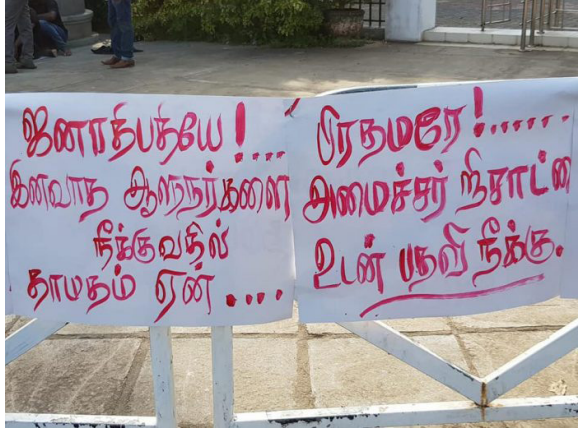 ஜனாதிபதியே!....
இனவாத ஆளுநர்களை
நீக்குவதில்
தாமதம் ஏன் ....
பிரதமரே!......
அமைச்சர் றிசாட்டை
உடன் பதவி நீக்கு.